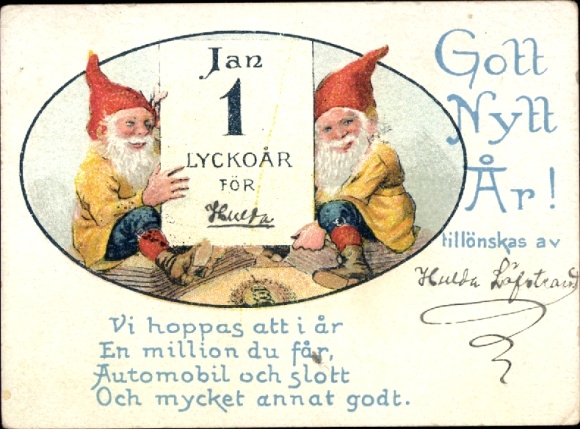 Jan
1
LYCKOÅR
FÖR
Hulda
Gott
Nytt
År!
tillönskas av
Hulda Löfstrand
Vi hoppas att i år
En million du får,
Automobil och slott
Och mycket annat godt.